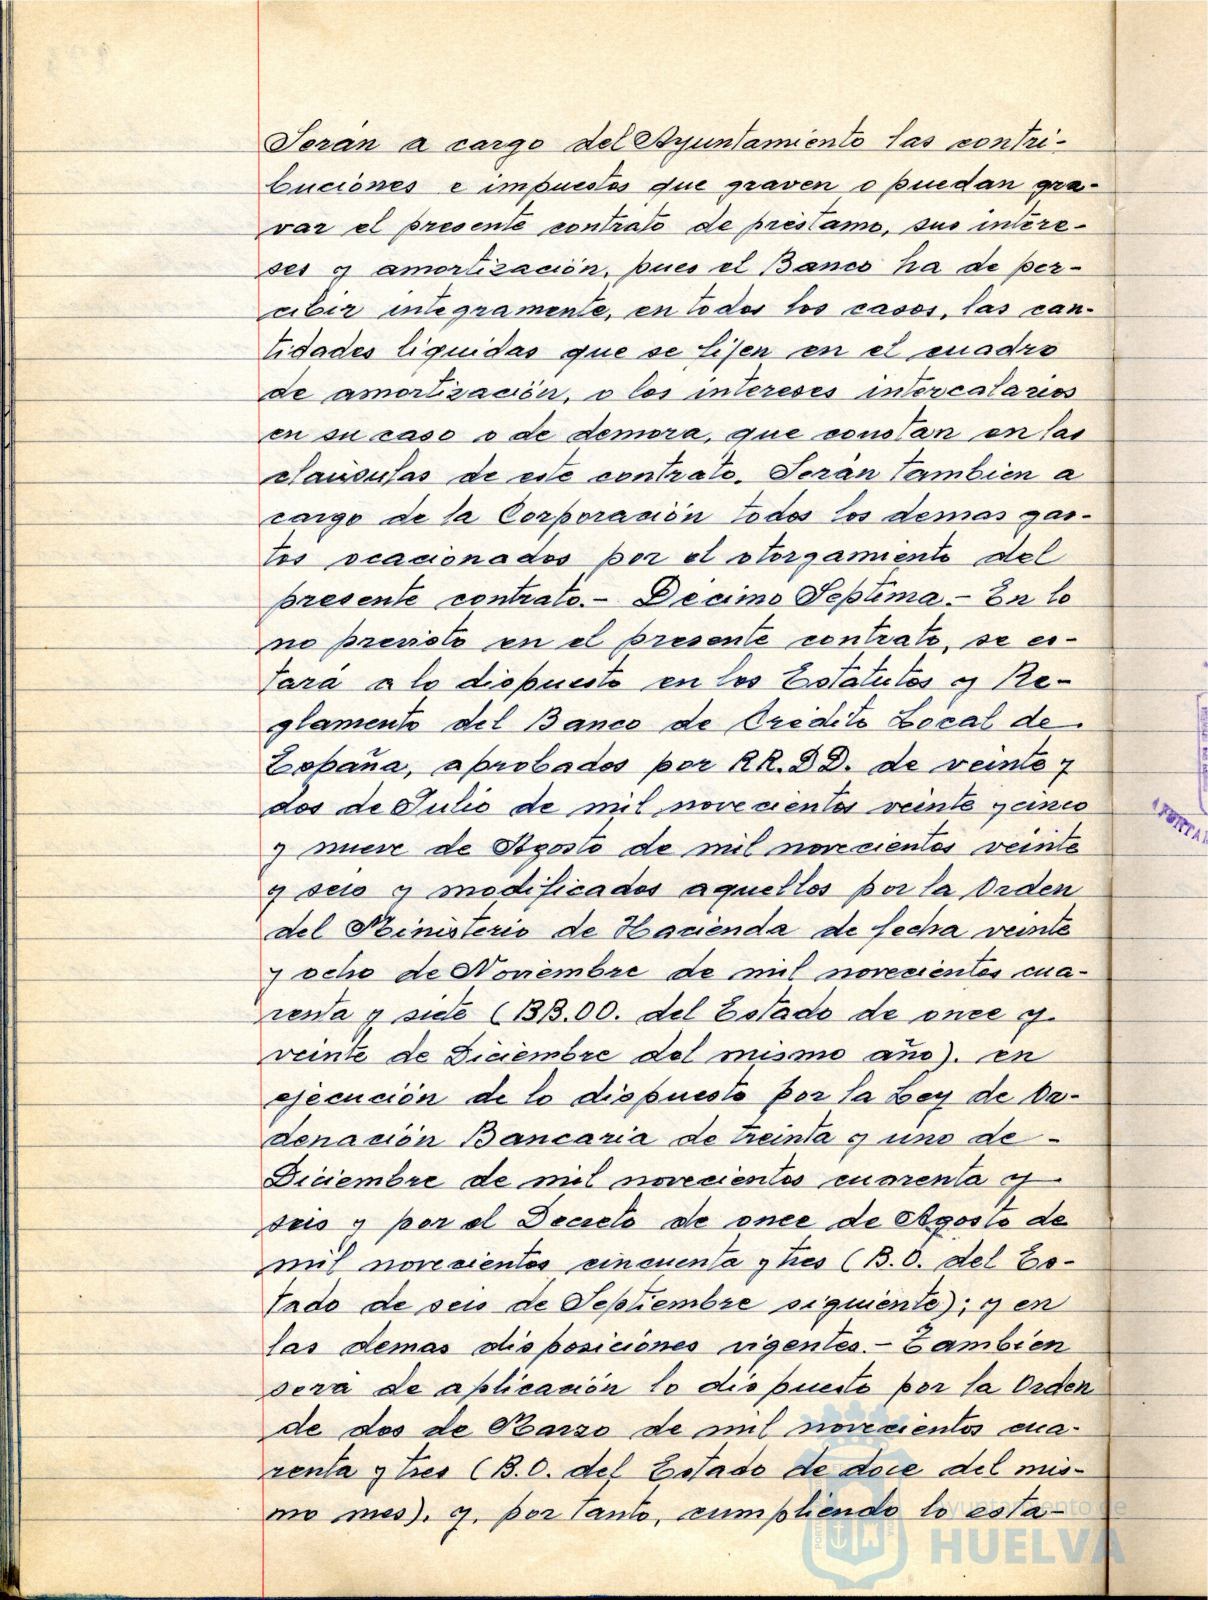 Serán a cargo del Ayuntamiento las contri-
buciones e impuestos que graven o puedan gra-
var el presente contrato de préstamo, sus intere-
ses y amortización, pues el Banco ha de per-
cibir integramente, en todos los casos, las can-
tidades liquidas que se fijen en el cuadro
de amortización, o los intereses intercalarios
en su caso o de demora, que constan en las
claúsulas de este contrato. Serán tambien a
cargo de la Corporación todos los demas gas-
tos ocacionados por el otorgamiento del
presente contrato.- Décimo Septima.- En lo
no previsto en el presente contrato, se es-
tará a lo dispuesto en los Estatutos y Re-
glamento del Banco de Crédito Local de
España, aprobados por RR.DD. de veinte y
dos de Julio de mil novecientos veinte y cinco
y nueve de Agosto de mil novecientos veinte
y seis y modificados aquellos por la Orden
del Ministerio de Hacienda de fecha veinte
y ocho de Noviembre de mil novecientos cua-
renta y siete (BB.OO. del Estado de once y
veinte de Diciembre del mismo año). en
ejecución de lo dispuesto por la Ley de Or-
denación Bancaria de treinta y uno de -
Diciembre de mil novecientos cuarenta y
seis y por el Decreto de once de Agosto de
mil novecientos cincuenta y tres (B.O. del Es-
tado de seis de Septiembre siguiente); y en
las demas disposiciones vigentes.- Tambien
será de aplicación lo dispuesto por la Orden
de dos de Marzo de mil novecientos cua-
renta y tres (B.O. del Estado de doce del mis-
mo mes). y, por tanto, cumpliendo lo esta-
Ayuntamiento de
HUELVA